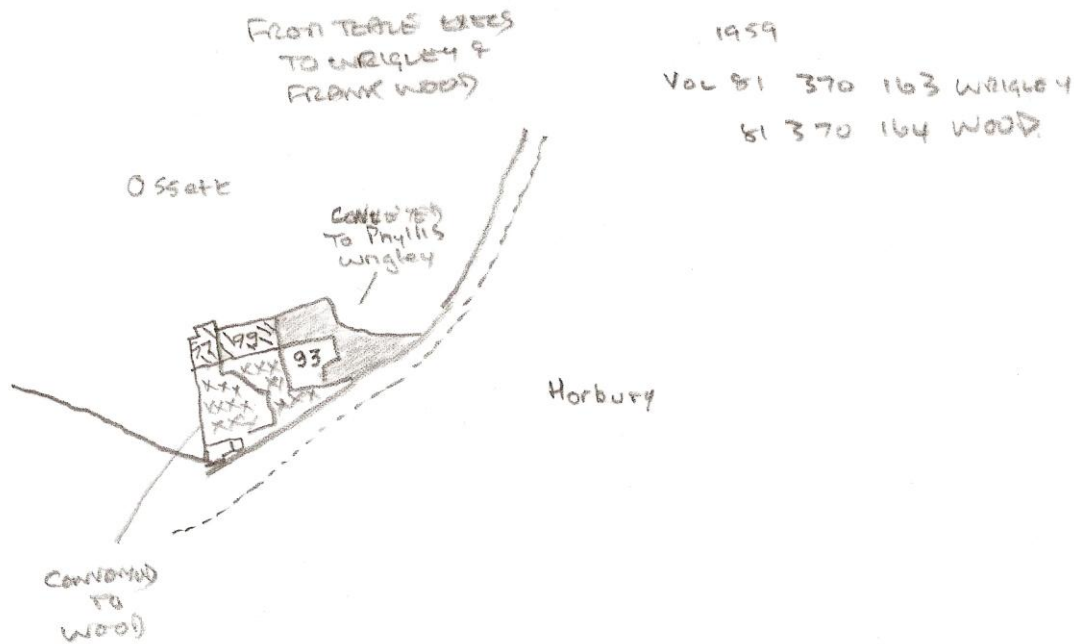 FROM TEALE EXERS
TO WRIGLEY &
FRANK WOOD
1959
VOL 81 370 163 WRIGLEY
81 370 164 WOOD
Ossett
CONVEYED
To Phyllis
Wrigley
99
93
Horbury
CONVEYED
TO
WOOD